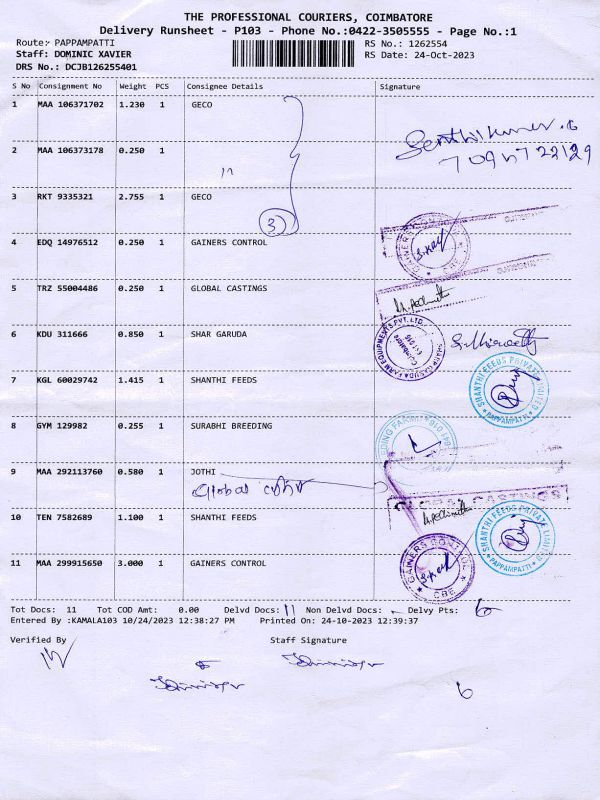 THE PROFESSIONAL COURIERS, COIMBATORE
Delivery Runsheet - P103 - Phone No.:0422-3505555 - Page No.:1
Route:- PAPPAMPATTI
RS No.: 1262554
Staff: DOMINIC XAVIER
RS Date: 24-Oct-2023
DRS No.: DCJB126255401
S No Consignment No Weight PCS Consignee Details Signature
1 MAA 106371702 1.230 1 GECO
2 MAA 106373178 0.250 1 "
3 RKT 9335321 2.755 1 GECO
3
4 EDQ 14976512 0.250 1 GAINERS CONTROL
5 TRZ 55004486 0.250 1 GLOBAL CASTINGS
6 KDU 311666 0.850 1 SHAR GARUDA
7 KGL 60029742 1.415 1 SHANTHI FEEDS
SHANTHI FEEDS PRIVATE LIMITED
PAPPAMPATTI
8 GYM 129982 0.255 1 SURABHI BREEDING
9 MAA 292113760 0.580 1 JOTHI
Global
10 TEN 7582689 1.100 1 SHANTHI FEEDS
SHANTHI FEEDS PRIVATE LIMITED
PAPPAMPATTI
11 MAA 299915650 3.000 1 GAINERS CONTROL
GAINERS CONTROL
CBE
Tot Docs: 11 Tot COD Amt: 0.00 Delvd Docs: 11 Non Delvd Docs: - Delvy Pts: 6
Entered By :KAMALA103 10/24/2023 12:38:27 PM Printed On: 24-10-2023 12:39:37
Verified By Staff Signature
6